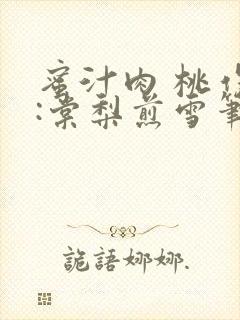 蜜汁肉桃作
:棠梨煎雪筆
詭語娜娜.